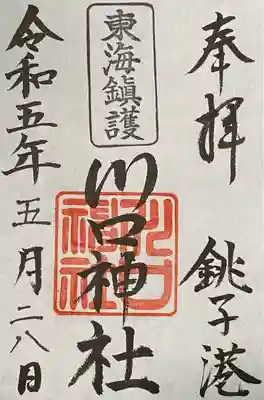 奉拝 銚子港
東海鎮護
川口神社
川口神社
令和五年五月二八日